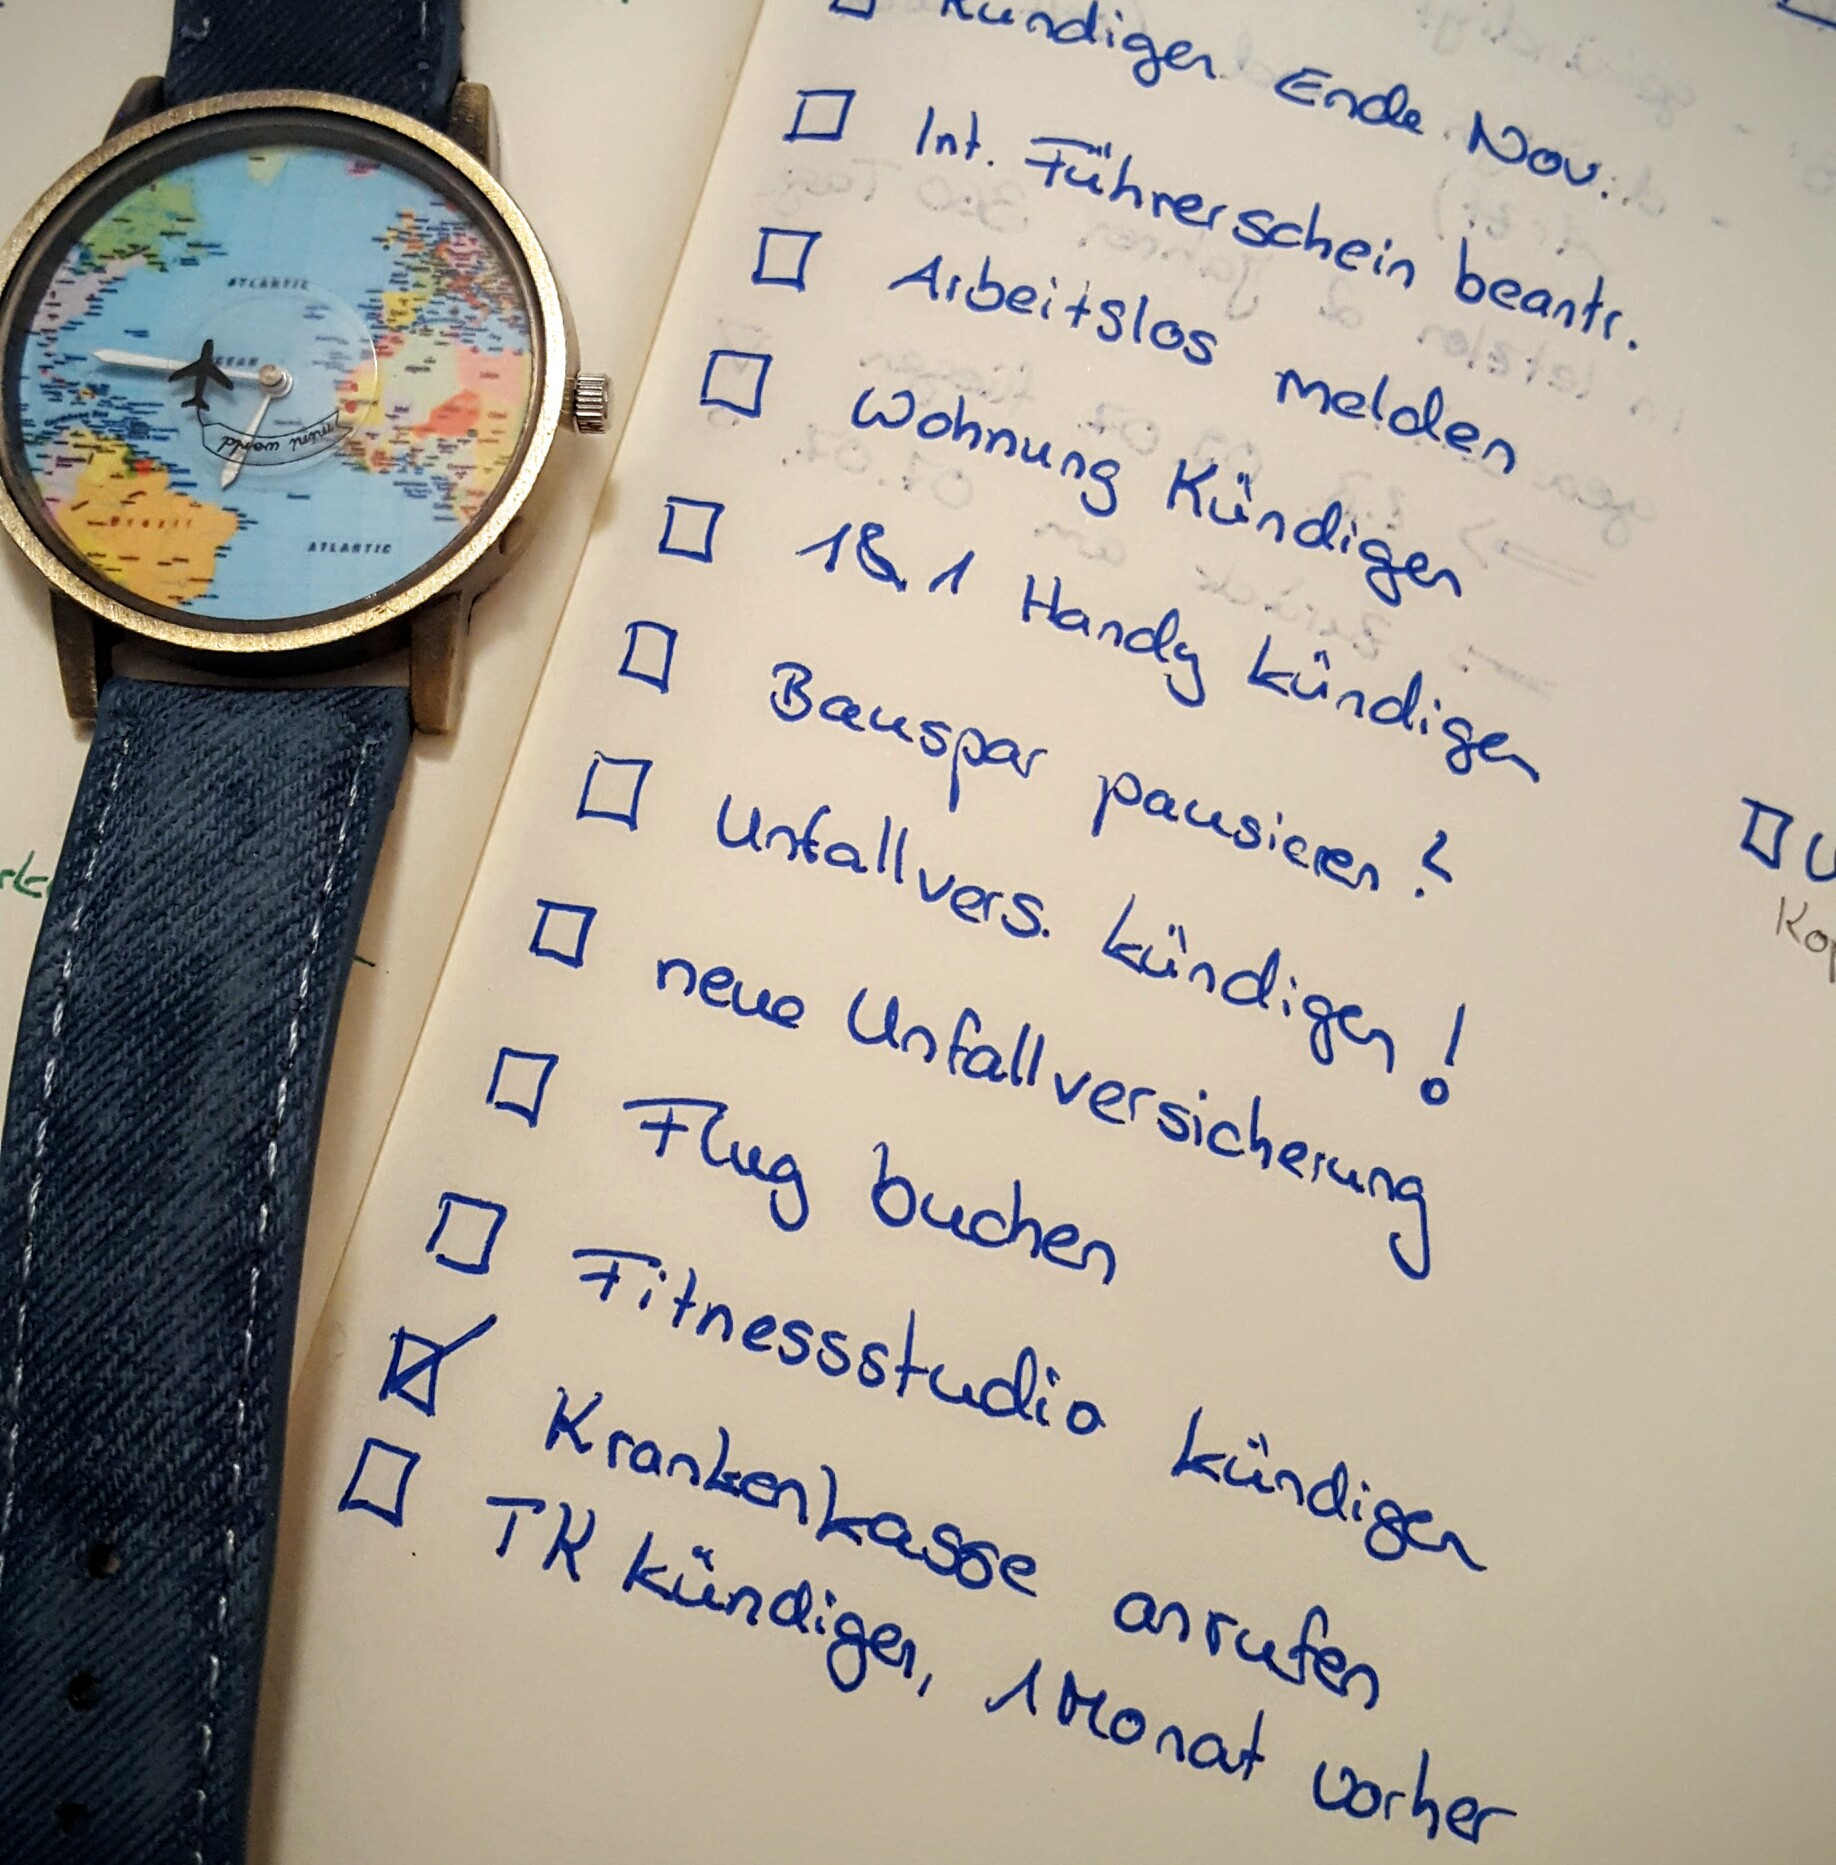 Kündigen Ende Nov.
Int. Führerschein beantr.
Arbeitslos melden
Wohnung Kündigen
1&1 Handy kündigen
Bauspar pausieren?
Unfallvers. kündigen!
neue Unfallversicherung
Flug buchen
Fitnessstudio kündigen
Krankenkasse anrufen
TK kündigen, 1 Monat vorher
ATLANTIC
OCEAN
Brazil
ATLANTIC